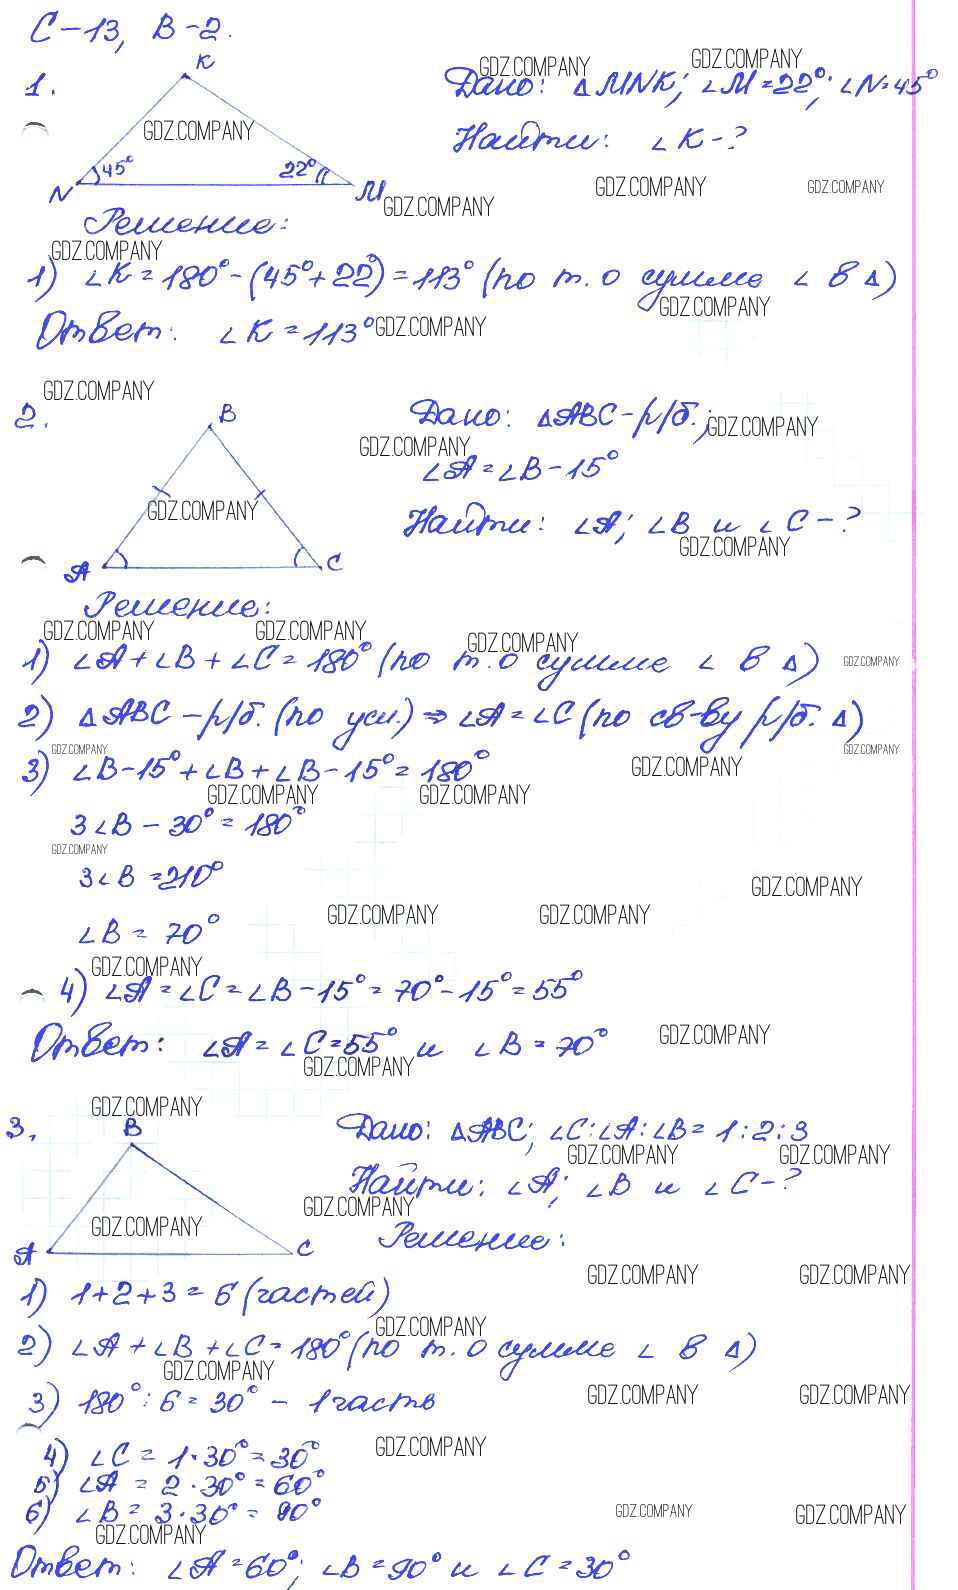 С-13, В-2.
1.
K
45°
22°
N
M
Дано: △MNK; ∠M=22°; ∠N=45°
Найти: ∠K-?
Решение:
1) ∠K=180°-(45°+22°)=113° (по т. о сумме ∠ в △)
Ответ: ∠K=113°
2.
B
A
C
Дано: △ABC-р/б.;
∠A=∠B-15°
Найти: ∠A; ∠B и ∠C-?
Решение:
1) ∠A+∠B+∠C=180° (по т. о сумме ∠ в △)
2) △ABC-р/б. (по усл.) ⇒ ∠A=∠C (по св-ву р/б. △)
3) ∠B-15°+∠B+∠B-15°=180°
3∠B-30°=180°
3∠B=210°
∠B=70°
4) ∠A=∠C=∠B-15°=70°-15°=55°
Ответ: ∠A=∠C=55° и ∠B=70°
3.
B
A
C
Дано: △ABC; ∠C:∠A:∠B=1:2:3
Найти: ∠A; ∠B и ∠C-?
Решение:
1) 1+2+3=6 (частей)
2) ∠A+∠B+∠C=180° (по т. о сумме ∠ в △)
3) 180°:6=30° - 1 часть
4) ∠C=1·30°=30°
5) ∠A=2·30°=60°
6) ∠B=3·30°=90°
Ответ: ∠A=60°; ∠B=90° и ∠C=30°
GDZ.COMPANY